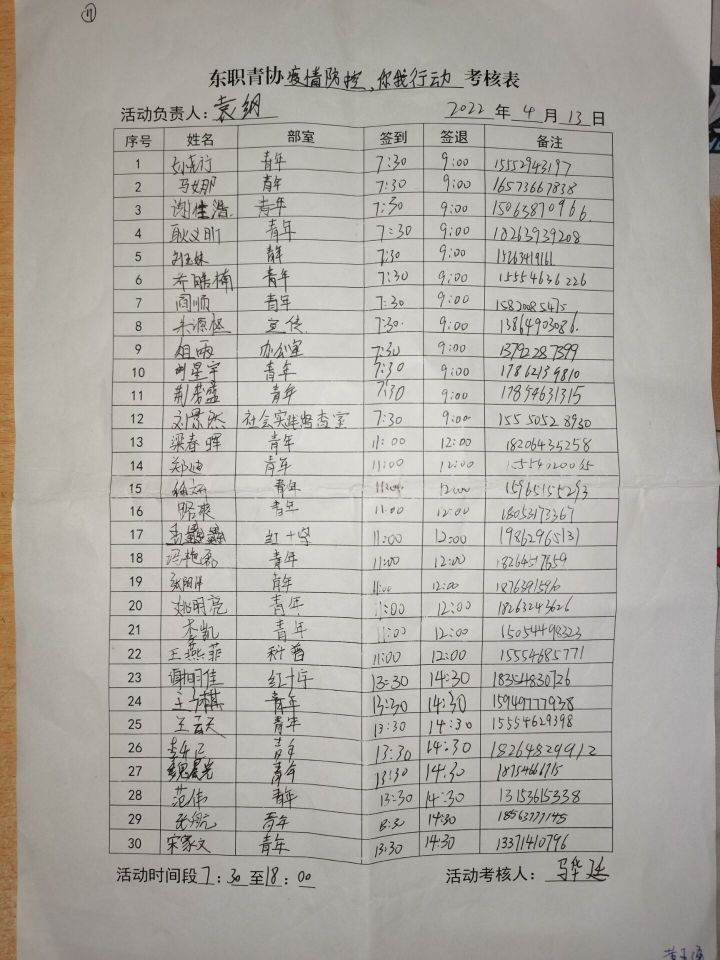 ⑪
东职青协疫情防控,你我行动 考核表
活动负责人:袁纲 2022 年 4 月 13 日
序号 姓名 部室 签到 签退 备注
1 青年 7:30 9:00 15552943197
2 马如那 青年 7:30 9:00 16573667838
3 谢佳浩 青年 7:30 9:00 15063870966.
4 耿文昕 青年 7:30 9:00 18263939208
5 刘玉妹 青年 7:30 9:00 15263419161
6 乔皓楠 青年 7:30 9:00 15554636226
7 阎顺 青年 7:30 9:00 15820085475
8 宣传 7:30 9:00 13864903086.
9 祖雨 办公室 7:30 9:00 13792287399
10 刘星宇 青年 7:30 9:00 17862139810
11 荆蓉蓉 青年 7:30 9:00 17854631315
12 刘景然 社会实践督查室 7:30 9:00 15550528930
13 梁春晖 青年 11:00 12:00 18206435258
14 郑迪 青年 11:00 12:00
15 徐妍 青年 11:00 12:00 15965155293
16 路爽 青年 11:00 12:00 18053173367
17 红十字 11:00 12:00 19862965131
18 冯艳磊 青年 11:00 12:00 1826457659
19 青年 11:00 12:00 18763915910
20 姚明亮 青年 11:00 12:00 18263243626
21 李凯 青年 11:00 12:00 15054498323
22 王燕菲 科普 11:00 12:00 15554685771
23 谢明佳 红十字 13:30 14:30 18354830726
24 王子棋 青年 13:30 14:30 15949777938
25 王云天 青年 13:30 14:30 15554629398
26 青年 13:30 14:30 18264829912
27 魏晨光 青年 13:30 14:30 18754666715
28 范伟 青年 13:30 14:30 13153615338
29 张航 青年 13:30 14:30 18563777145
30 宋家文 青年 13:30 14:30 13371410796
活动时间段 7:30 至18:00 活动考核人: 马华廷